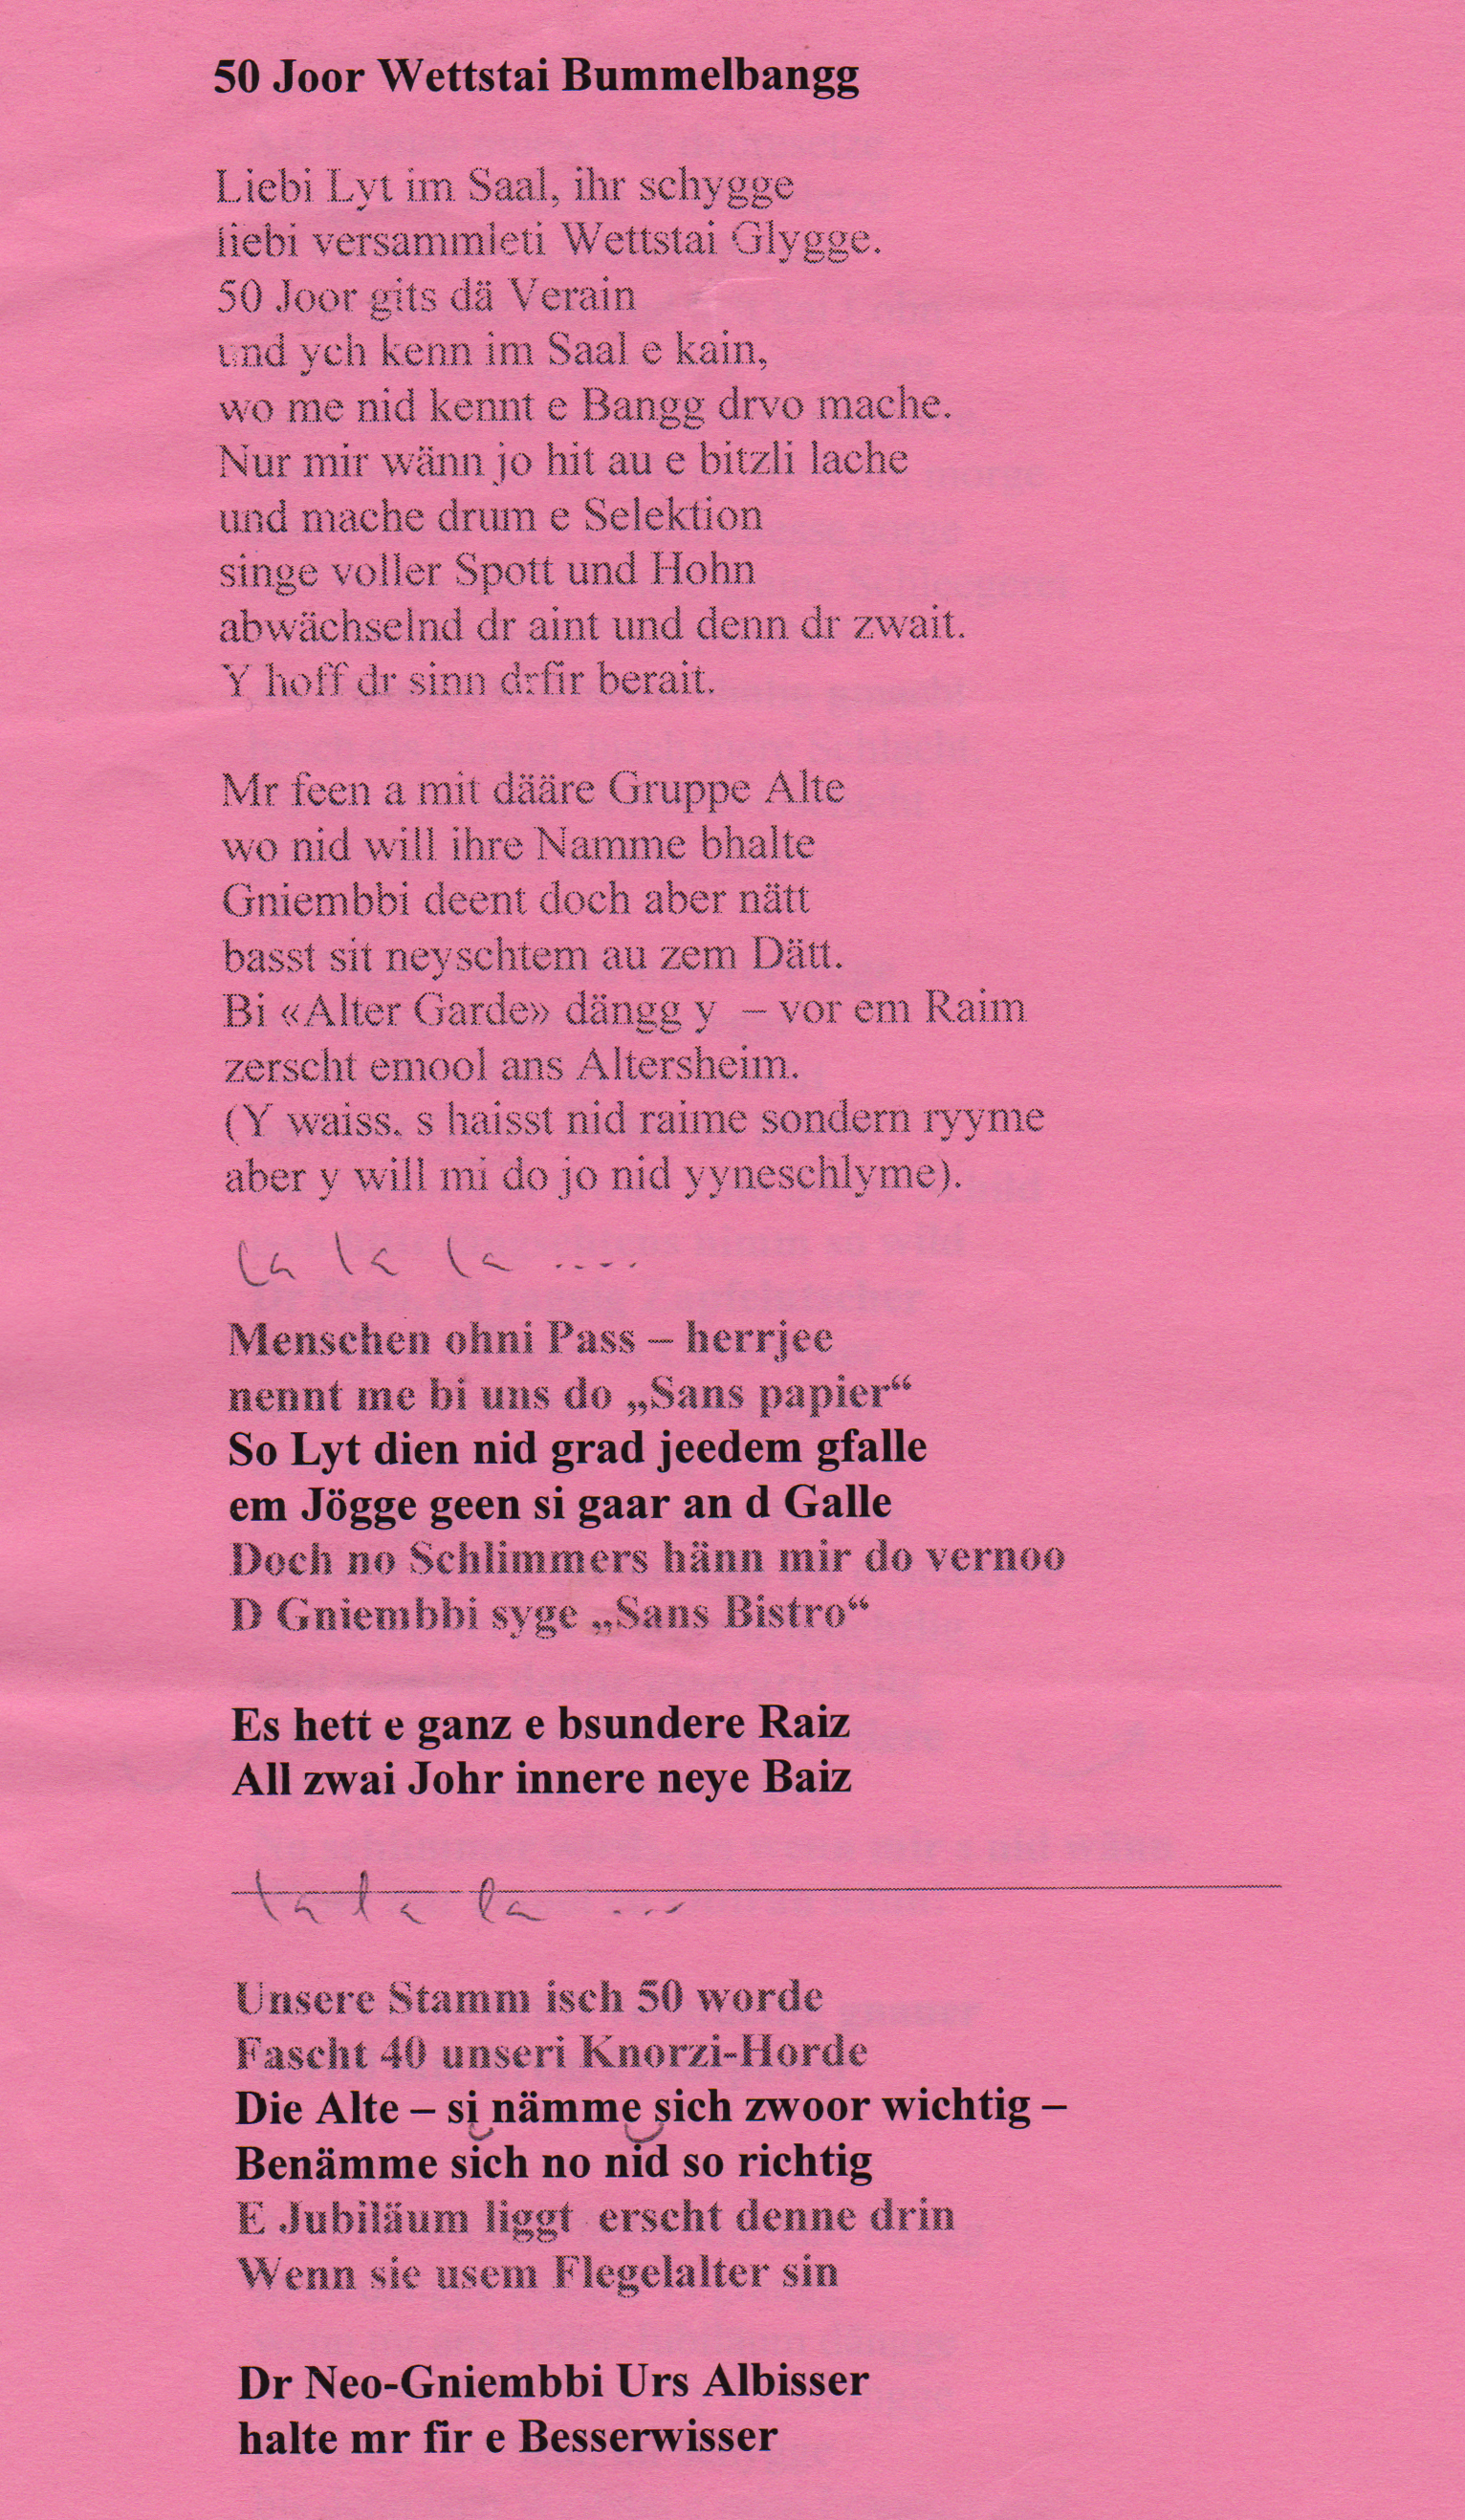 50 Joor Wettstai Bummelbangg
Liebi Lyt im Saal, ihr schygge
liebi versammleti Wettstai Glygge.
50 Joor gits dä Verain
und ych kenn im Saal e kain,
wo me nid kennt e Bangg drvo mache.
Nur mir wänn jo hit au e bitzli lache
und mache drum e Selektion
singe voller Spott und Hohn
abwächselnd dr aint und denn dr zwait.
Y hoff dr sinn drfir berait.
Mr feen a mit dääre Gruppe Alte
wo nid will ihre Namme bhalte
Gniembbi deent doch aber nätt
basst sit neyschtem au zem Dätt.
Bi «Alter Garde» dängg y – vor em Raim
zerscht emool ans Altersheim.
(Y waiss. s haisst nid raime sondern ryyme
aber y will mi do jo nid yyneschlyme).
la la la ....
Menschen ohni Pass – herrjee
nennt me bi uns do „Sans papier“
So Lyt dien nid grad jeedem gfalle
em Jögge geen si gaar an d Galle
Doch no Schlimmers hänn mir do vernoo
D Gniembbi syge „Sans Bistro“
Es hett e ganz e bsundere Raiz
All zwai Johr innere neye Baiz
la la la ...
Unsere Stamm isch 50 worde
Fascht 40 unseri Knorzi-Horde
Die Alte – si nämme sich zwoor wichtig –
Benämme sich no nid so richtig
E Jubiläum liggt erscht denne drin
Wenn sie usem Flegelalter sin
Dr Neo-Gniembbi Urs Albisser
halte mr fir e Besserwisser